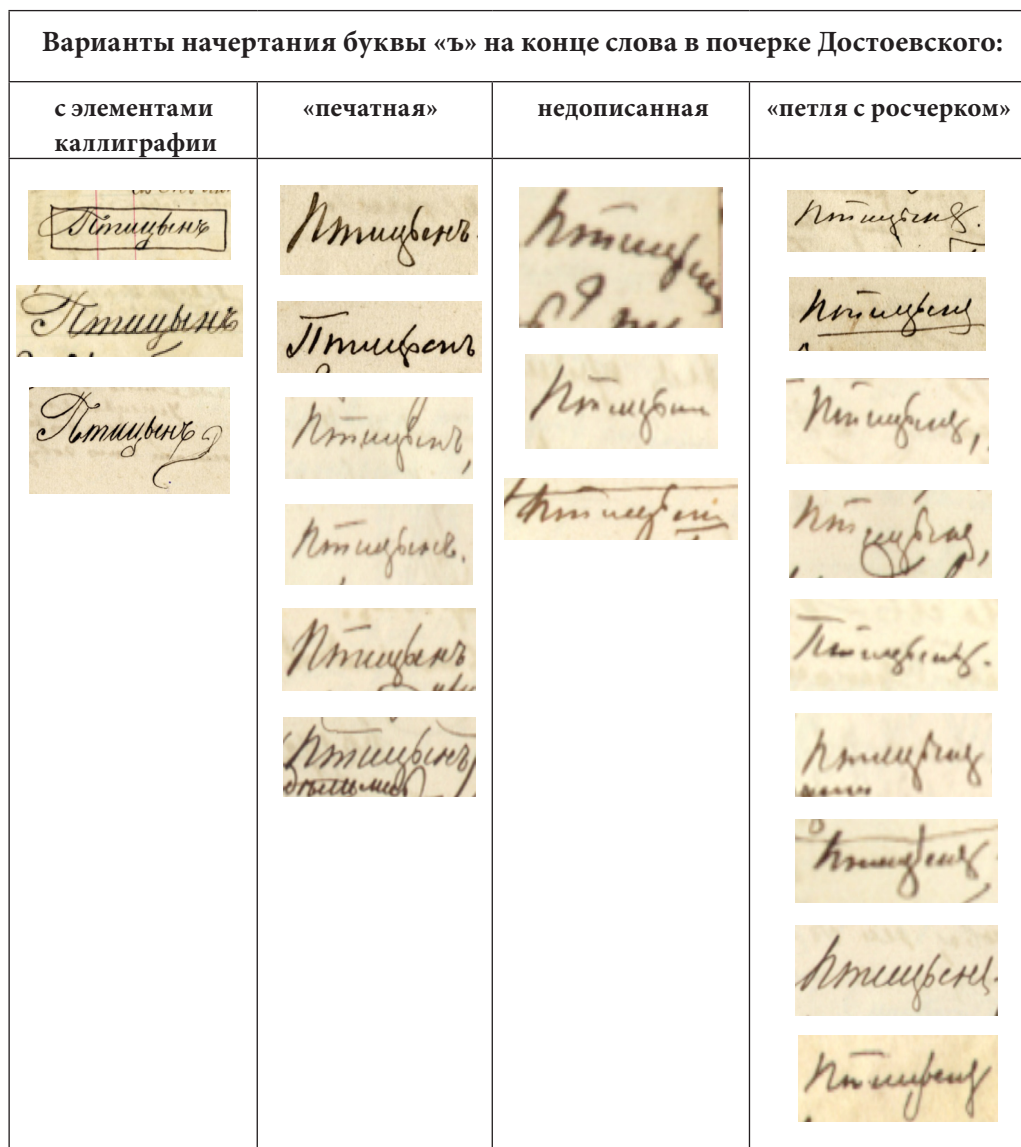 Варианты начертания буквы «ъ» на конце слова в почерке Достоевского:
с элементами каллиграфии
«печатная»
недописанная
«петля с росчерком»
Птицынъ
Птицынъ
Птицынъ
Птицынъ.
Птицынъ
Птицынъ,
Птицынъ.
Птицынъ
Птицынъ
Птицын
Птицын
Птицын
Птицынъ.
Птицынъ
Птицынъ,
Птицынъ,
Птицынъ.
Птицынъ
Птицынъ.
Птицынъ.
Птицынъ